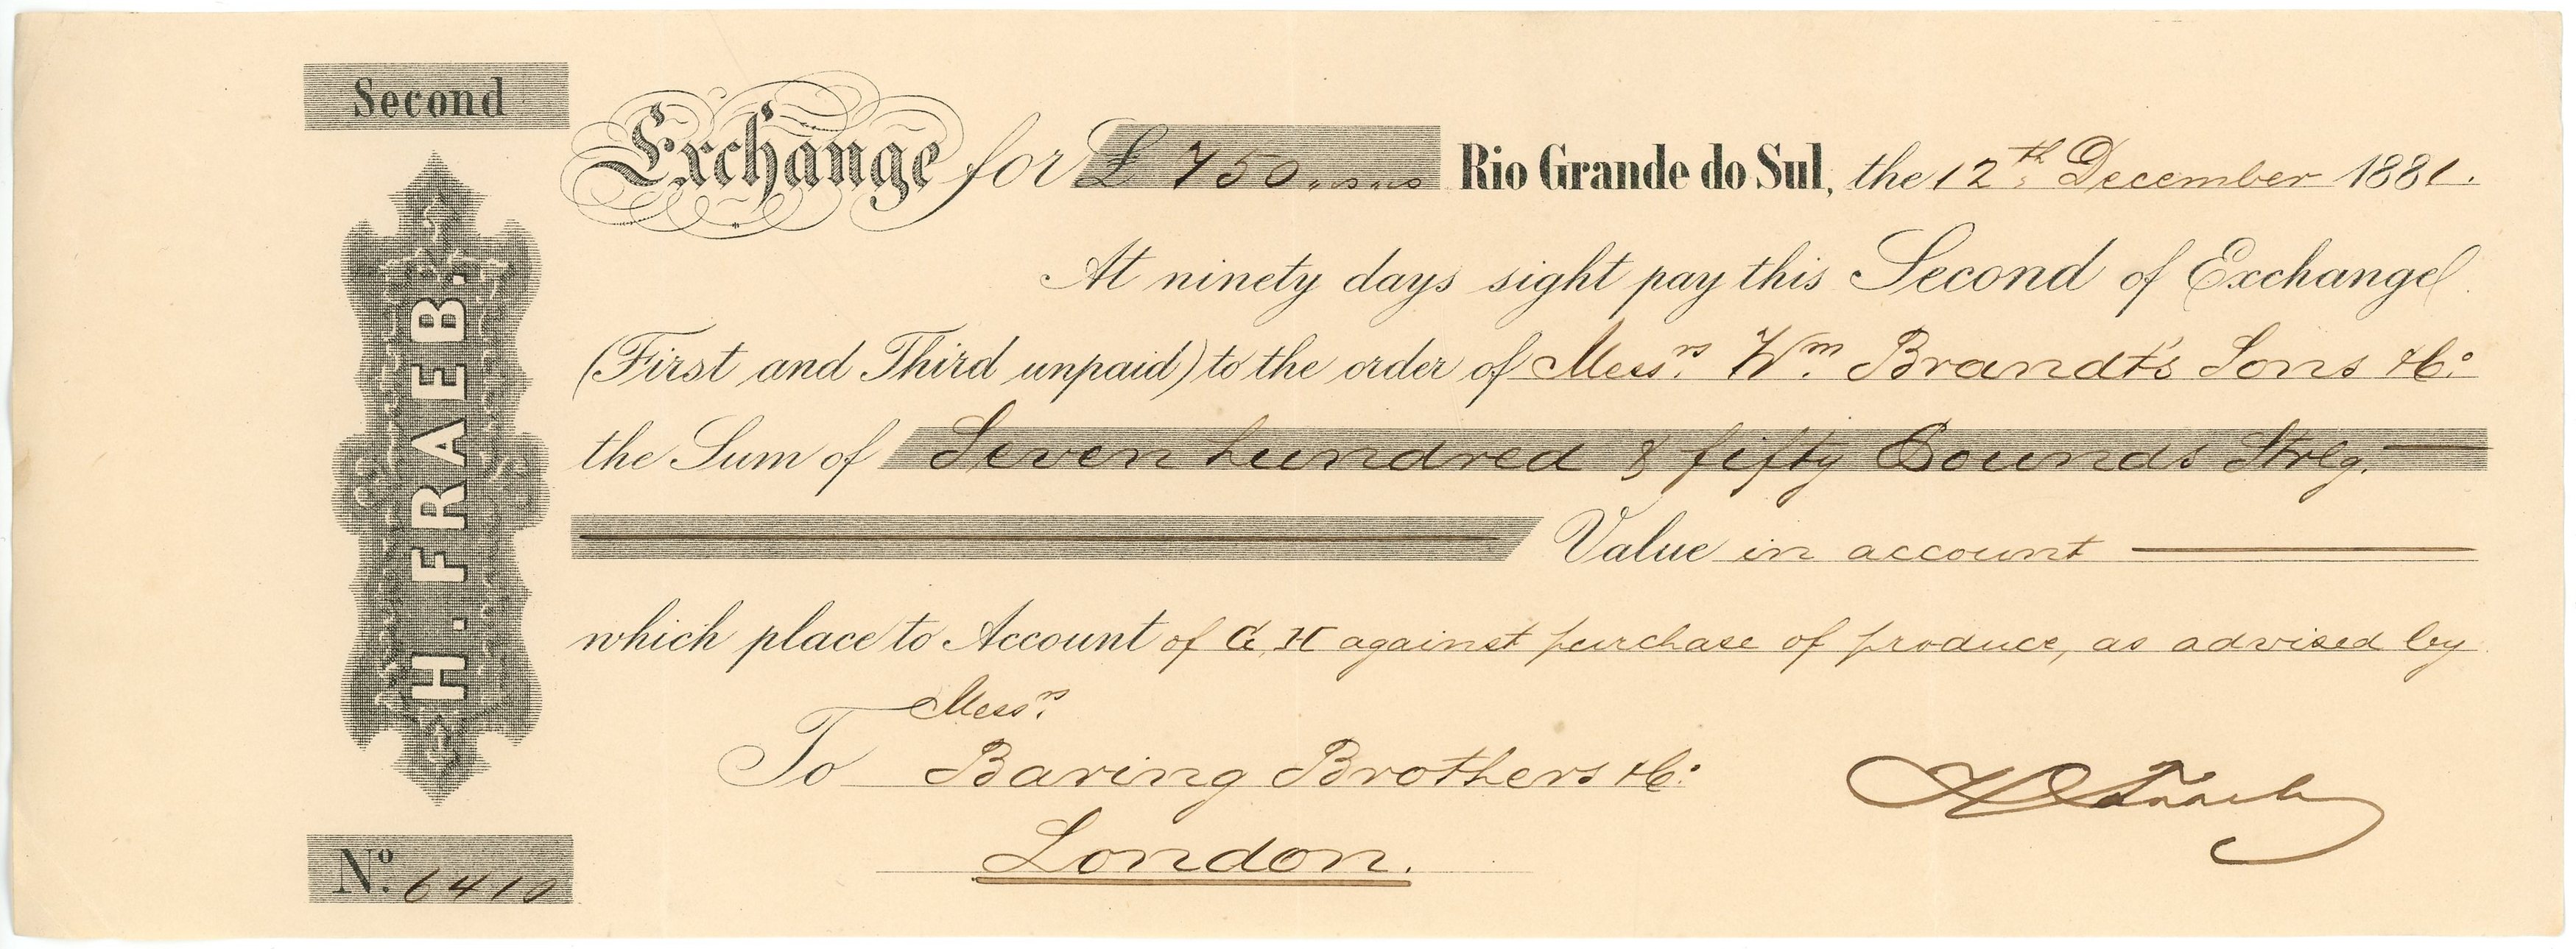 Second
Exchange for £ 750.„ Rio Grande do Sul, the 12th December 1881.
At ninety days sight pay this Second of Exchange
(First and Third unpaid) to the order of Messrs. Wm. Brandt's Sons & Co.
the Sum of Seven hundred & fifty Pounds Strlg.
Value in account
which place to Account of G, H against purchase of produce, as advised by
Messrs.
To Baring Brothers & Co.
London.
H Fraeb
H. FRAEB.
No. 6410